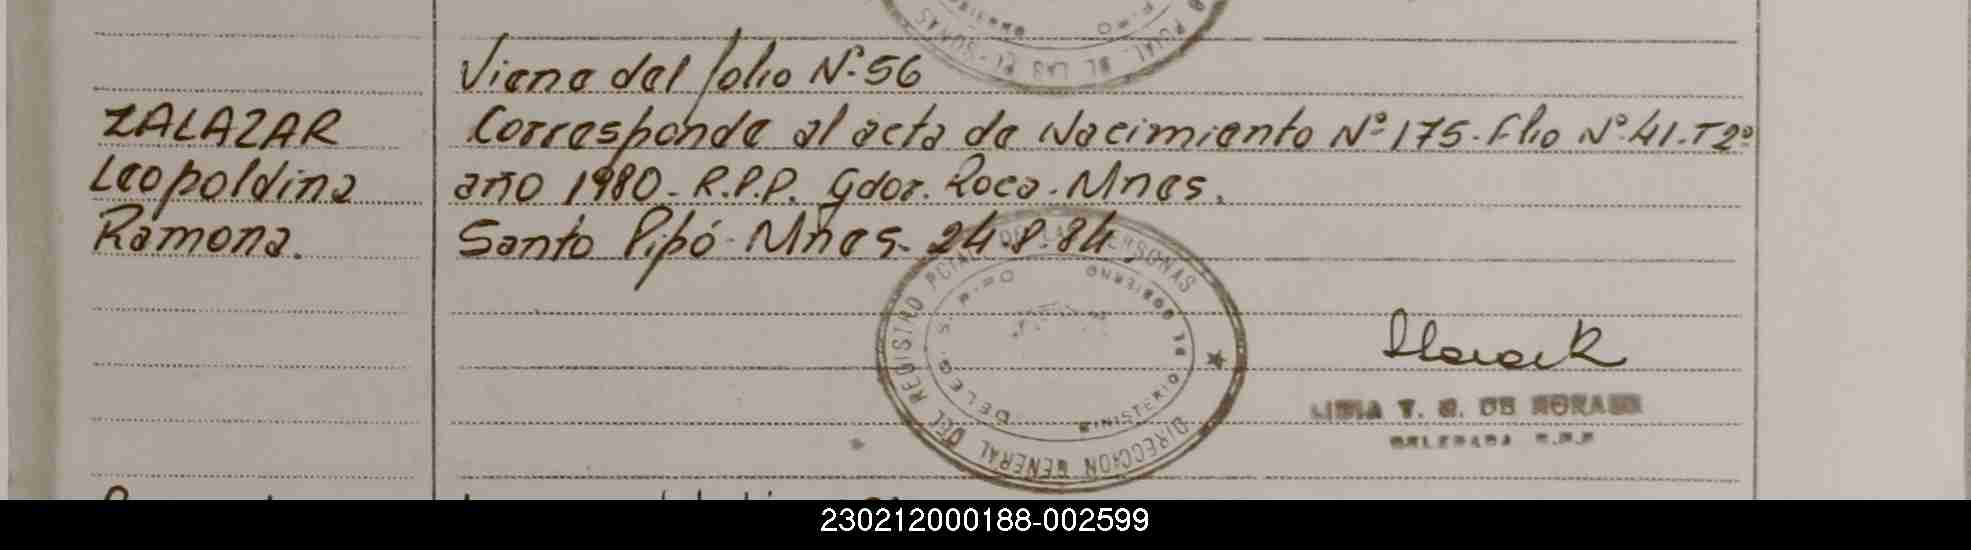 Viene del folio Nº 56
ZALAZAR
Leopoldina
Ramona.
Corresponde al acta de Nacimiento Nº 175 - Flio Nº 41 - T 2º
año 1980 - R.P.P. Gdor. Roca - Mnes.
Santo Pipó - Mnes - 24.8.84
DIRECCION GENERAL DEL REGISTRO PCIAL DE LAS PERSONAS
MINISTERIO DE GOBIERNO
DELEG. S. PIPO
T. G. DE MORAES
DELEGADA R.P.P.
230212000188-002599